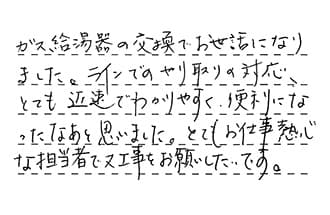 ガス給湯器の交換でお世話になり
ました。ラインでのやり取りの対応、
とても迅速でわかりやすく、便利にな
ったなあと思いました。とてもお仕事熱心
な担当者で又工事をお願いしたいです。